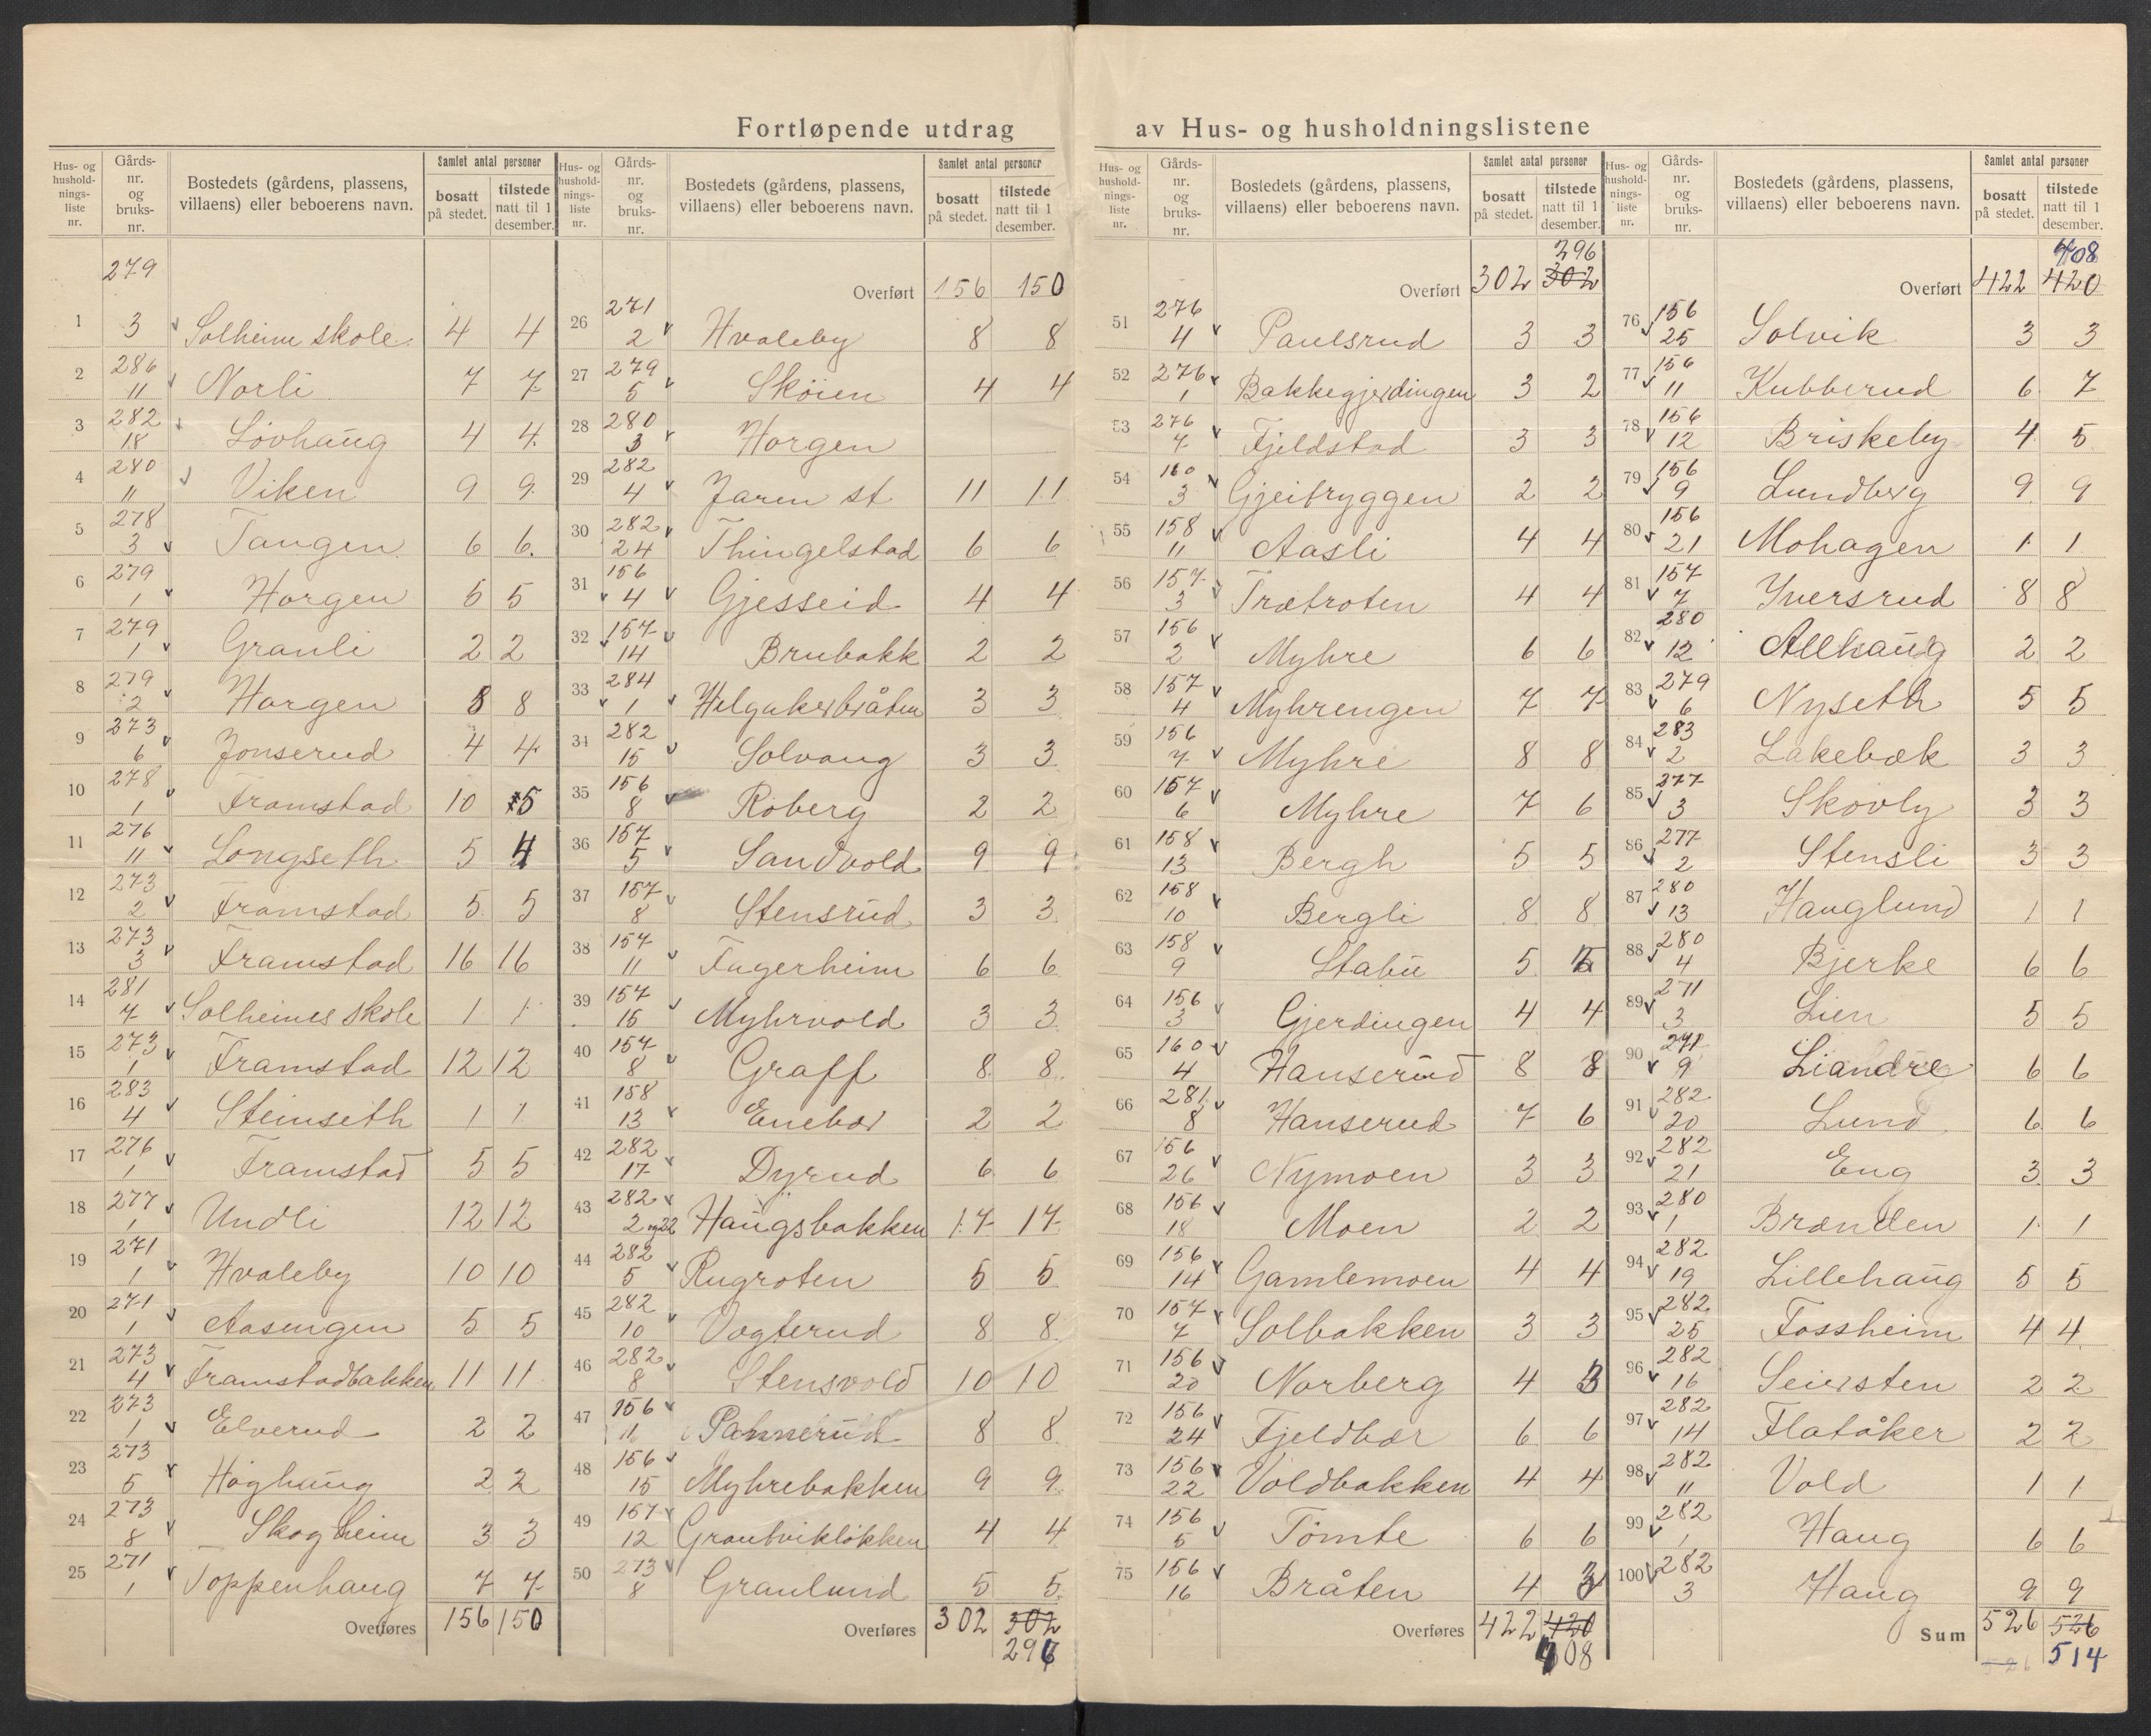 Fortløpende utdrag av Hus- og husholdningslistene
Hus- og husholdnings- liste nr. | Gårds- nr. og bruks- nr. | Bostedets (gårdens, plassens, villaens) eller beboerens navn. | Samlet antal personer bosatt på stedet. | tilstede natt til 1 desember.
1 279 3 Solheim skole 4 4
2 286 11 Norli 7 7
3 282 18 Lövhaug 4 4
4 280 11 Viken 9 9
5 278 3 Tangen 6 6
6 279 1 Horgen 5 5
7 279 1 Granli 2 2
8 279 2 Horgen 8 8
9 273 6 Jonserud 4 4
10 278 1 Framstad 10 5
11 276 11 Longseth 5 4
12 273 2 Framstad 5 5
13 273 3 Framstad 16 16
14 281 7 Solheimes skole 1 1
15 273 1 Framstad 12 12
16 283 4 Steinseth 1 1
17 276 1 Framstad 5 5
18 277 1 Undli 12 12
19 271 1 Hvaleby 10 10
20 271 1 Aasengen 5 5
21 273 4 Framstadbakken 11 11
22 273 1 Elverud 2 2
23 273 5 Höghaug 2 2
24 273 8 Skogheim 3 3
25 271 1 Toppenhaug 7 7
Overføres 156 150
Hus- og husholdnings- liste nr. | Gårds- nr. og bruks- nr. | Bostedets (gårdens, plassens, villaens) eller beboerens navn. | Samlet antal personer bosatt på stedet. | tilstede natt til 1 desember.
Overført 156 150
26 271 2 Hvaleby 8 8
27 279 5 Sköien 4 4
28 280 3 Horgen
29 282 4 Jaren st 11 11
30 282 24 Thingelstad 6 6
31 156 4 Gjesseid 4 4
32 157 14 Brubakk 2 2
33 284 1 Helgakerbråten 3 3
34 282 15 Solvang 3 3
35 156 8 Röberg 2 2
36 157 5 Sandvold 9 9
37 157 8 Stensrud 3 3
38 157 11 Fagerheim 6 6
39 157 15 Myhrvold 3 3
40 157 8 Graff 8 8
41 158 13 Enebær 2 2
42 282 17 Dyrud 6 6
43 282 2 og 22 Haugsbakken 17 17
44 282 5 Rugroten 5 5
45 282 10 Vogterud 8 8
46 282 8 Stensvold 10 10
47 156 11 Pannerud 8 8
48 156 15 Myhrebakken 9 9
49 157 12 Grantviklökken 4 4
50 273 8 Granlund 5 5
Overføres 302 302
296
Hus- og husholdnings- liste nr. | Gårds- nr. og bruks- nr. | Bostedets (gårdens, plassens, villaens) eller beboerens navn. | Samlet antal personer bosatt på stedet. | tilstede natt til 1 desember.
296
Overført 302 302
51 276 4 Paulsrud 3 3
52 276 1 Bakkegjerdingen 3 2
53 276 7 Fjeldstad 3 3
54 160 3 Gjeitryggen 2 2
55 158 11 Aasli 4 4
56 157 3 Trætroten 4 4
57 156 2 Myhre 6 6
58 157 4 Myhrengen 7 7
59 156 7 Myhre 8 8
60 157 6 Myhre 7 6
61 158 13 Bergh 5 5
62 158 10 Bergli 8 8
63 158 9 Stabu 5
64 156 3 Gjerdingen 4 4
65 160 4 Hanserud 8 8
66 281 8 Hanserud 7 6
67 156 26 Nymoen 3 3
68 156 18 Moen 2 2
69 156 14 Gamlemoen 4 4
70 157 7 Solbakken 3 3
71 156 20 Norberg 4 3
72 156 24 Fjeldbær 6 6
73 156 22 Voldbakken 4 4
74 156 5 Tömte 6 6
75 156 16 Bråten 4 3
Overføres 422 420
408
Hus- og husholdnings- liste nr. | Gårds- nr. og bruks- nr. | Bostedets (gårdens, plassens, villaens) eller beboerens navn. | Samlet antal personer bosatt på stedet. | tilstede natt til 1 desember.
408
Overført 422 420
76 156 25 Solvik 3 3
77 156 11 Kubberud 6 7
78 156 12 Briskeby 4 5
79 156 9 Lundberg 9 9
80 156 21 Mohagen 1 1
81 157 7 Yversrud 8 8
82 280 12 Allhaug 2 2
83 279 6 Nyseth 5 5
84 283 2 Lakebæk 3 3
85 277 3 Skovly 3 3
86 277 2 Stensli 3 3
87 280 13 Hauglund 1 1
88 280 4 Bjerke 6 6
89 271 3 Lien 5 5
90 271 9 Liandre 6 6
91 282 20 Lund 6 6
92 282 21 Eng 3 3
93 280 1 Brænden 1 1
94 282 19 Lillehaug 5 5
95 282 25 Fossheim 4 4
96 282 16 Seiersten 2 2
97 282 14 Flatåker 2 2
98 282 11 Vold 1 1
99 282 1 Haug 6 6
100 282 3 Haug 9 9
Sum 526 526
526 514